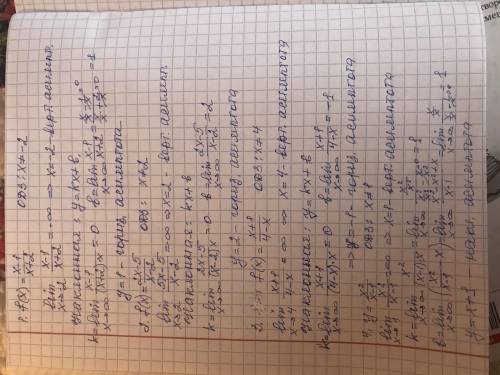 1. f(x) = x-1/x+2   ОДЗ: x≠-2
lim x→-2 x-1/x+2 = -∞ ⇒ x=-2 - верт. асимпт.
Наклонная: y=kx+b,
k=lim x→∞ x-1/(x+2)x = 0   b=lim x→∞ x-1/x+2 = = 1
y=1 - гориз. асимптота
2. f(x) = 2x-5/x-2   ОДЗ: x≠2
lim x→2 = ∞ ⇒ x=2 - верт. асимпт.
Наклонная: kx+b
k=lim x→∞ 2x-5/(x-2)x = 0   b=lim x→∞ 2x-5/x-2 = 2
y=2 - гориз. асимптота
f(x) = x+1/4-x   ОДЗ: x≠4
lim x→4 x+1/4-x = ∞ ⇒ x=4 - верт. асимптота
Наклонная: y=kx+b
k=lim x→∞ x+1/(4-x)x = 0   b=lim x→∞ x+1/4-x = -1
⇒ y=-1 - гориз. асимптота
4. y = x²/x-1   ОДЗ: x≠1
lim x→1 x²/x-1 = ∞ ⇒ x=1 - верт. асимптота
k=lim x→∞ x²/(x-1)x = lim x→∞ = 1
b=lim x→∞ (x²/x-1 - x) = lim x→∞ x²-x²+x/x-1 = lim x→∞ = 1
y=x+1 - накл. асимптота